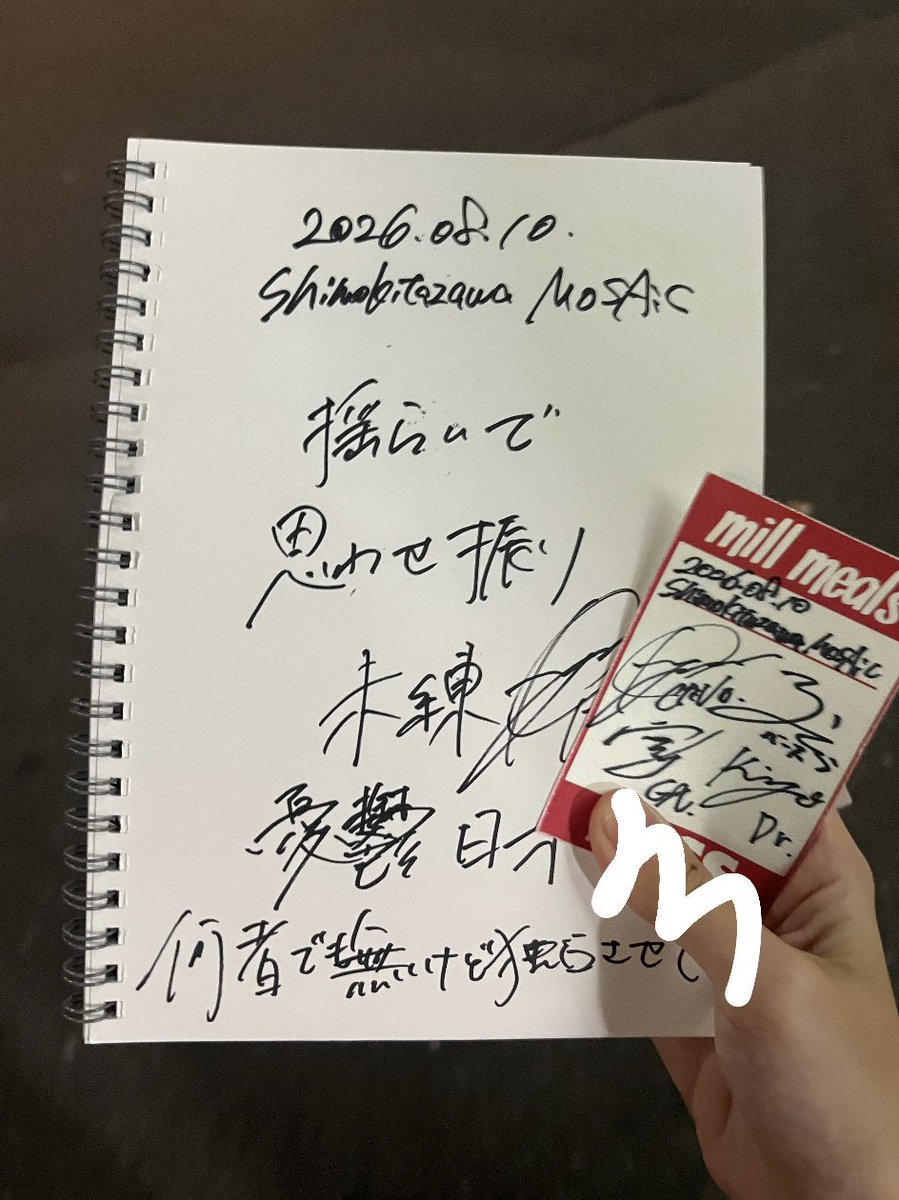 2026.08.10.
Shimokitazawa MOSAiC
揺らいで
思わせ振り
未練
憂鬱日
何者でも無いけど
させ
mill meals
2026.08.10
Shimokitazawa MOSAiC
Gt.
Dr.